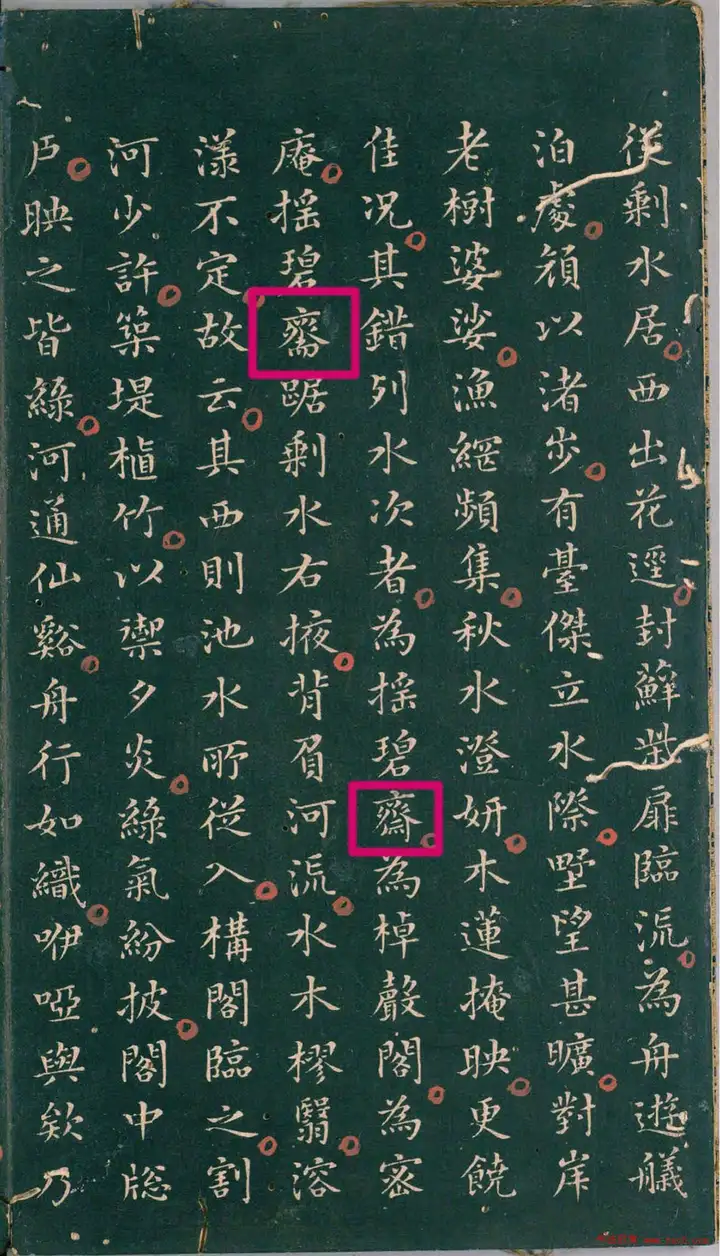 從剩水居西出花逕封蘚柴扉臨流為舟遊艤
泊處頎以渚步有臺傑立水際墅望甚曠對岸
老樹婆娑漁網頻集秋水澄妍木蓮掩映更饒
佳况其錯列水次者為摇碧齋為棹聲閣為宻
庵摇碧齋踞剩水右掖背眉河流水木樛翳溶
漾不定故云其西則池水所從入構閣臨之割
河少許築堤植竹以禦夕炎綠氣紛披閣中牕
戶映之皆綠河通仙谿舟行如織咿啞與欸乃